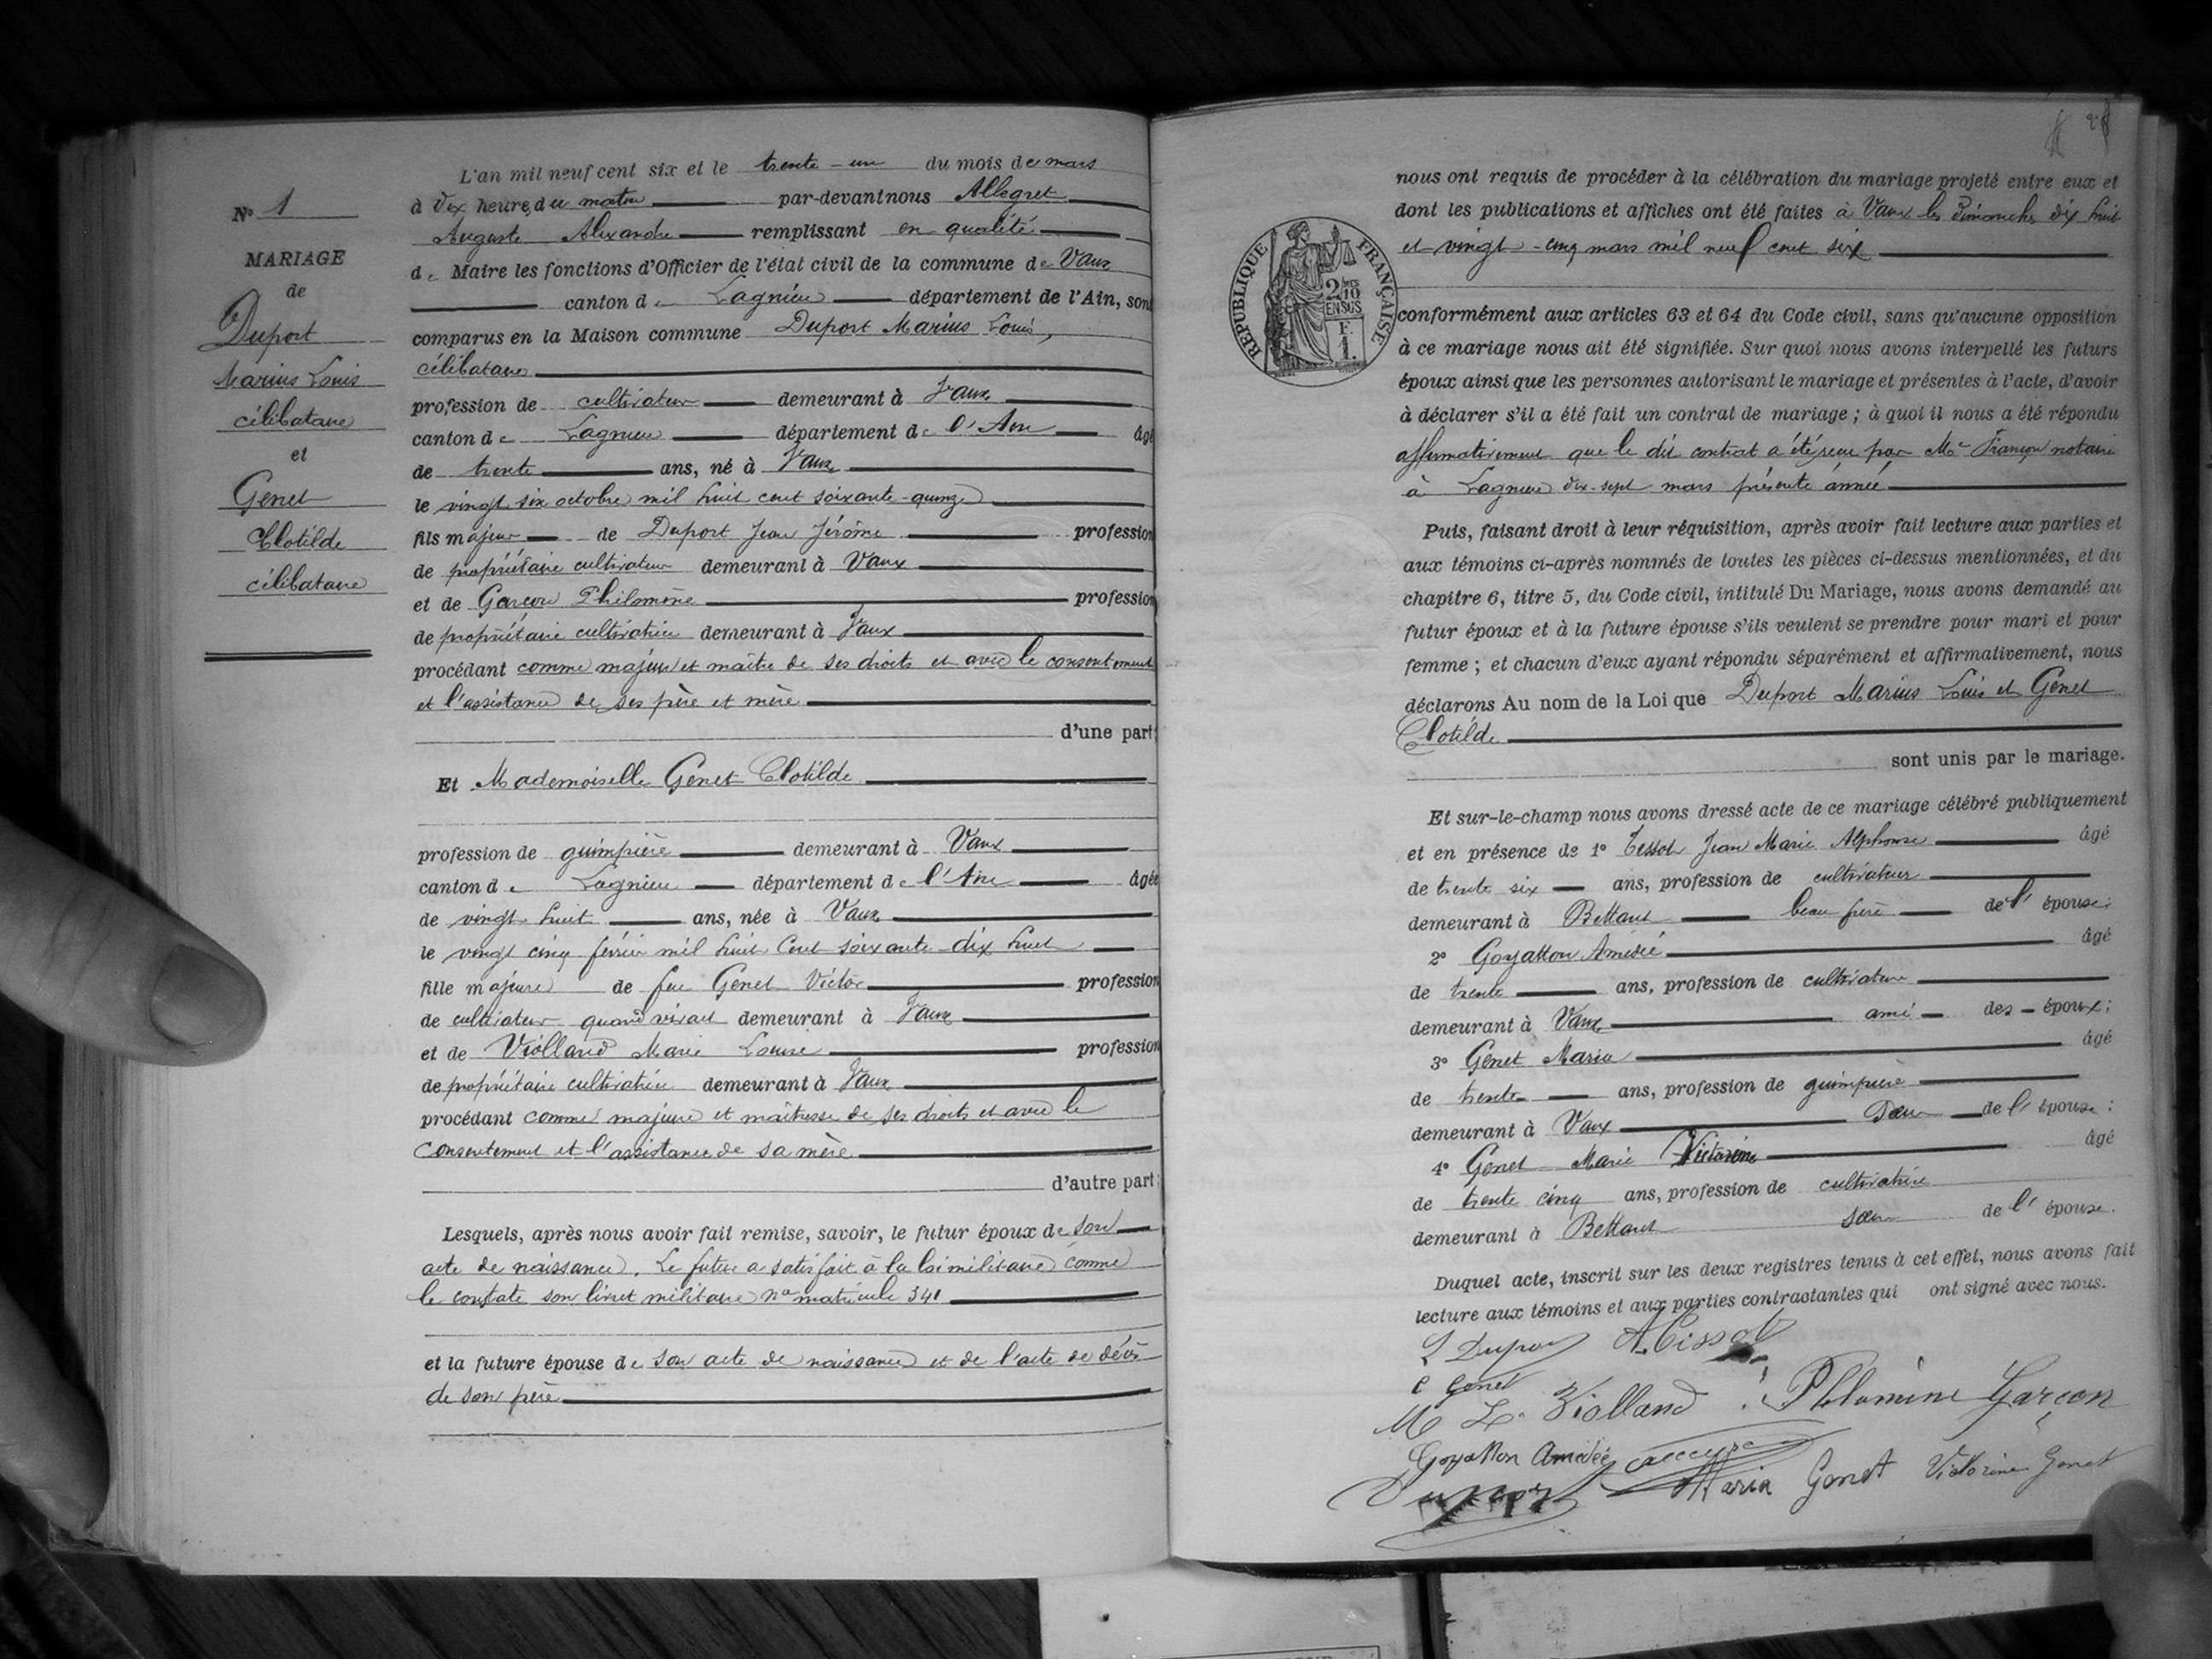 N° 1
MARIAGE
de
Duport
Marius Louis
célibataire
et
Genet
Clotilde
célibataire
L'an mil neuf cent six et le trente-un du mois de mars
à dix heure du matin par-devant nous Allegret
Auguste Alexandre remplissant en qualité
de Maire les fonctions d'Officier de l'état civil de la commune de Vaux
canton de Lagnieu département de l'Ain, sont
comparus en la Maison commune Duport Marius Louis,
célibataire
profession de cultivateur demeurant à Vaux
canton de Lagnieu département de l'Ain âgé
de trente ans, né à Vaux
le vingt six octobre mil huit cent soixante-quinze
fils majeur de Duport Jean Jérôme profession
de propriétaire cultivateur demeurant à Vaux
et de Garcon Philomène profession
de propriétaire cultivatrice demeurant à Vaux
procédant comme majeur et maître de ses droits et avec le consentement
et l'assistance de ses père et mère
d'une part;
Et Mademoiselle Genet Clotilde
profession de guimpière demeurant à Vaux
canton de Lagnieu département de l'Ain âgée
de vingt huit ans, née à Vaux
le vingt cinq février mil huit cent soixante dix huit
fille majeure de feu Genet Victor profession
de cultivateur quand vivait demeurant à Vaux
et de Violland Marie Louise profession
de propriétaire cultivatrice demeurant à Vaux
procédant comme majeure et maîtresse de ses droits et avec le
consentement et l'assistance de sa mère
d'autre part;
Lesquels, après nous avoir fait remise, savoir, le futur époux de son
acte de naissance. Le futur a satisfait à la loi militaire comme
le constate son livret militaire n° matricule 341
et la future épouse de son acte de naissance et de l'acte de décès
de son père
nous ont requis de procéder à la célébration du mariage projeté entre eux et
dont les publications et affiches ont été faites à Vaux les Dimanches dix huit
et vingt-cinq mars mil neuf cent six
RÉPUBLIQUE FRANÇAISE
2/10
EN SUS
F.
1.
conformément aux articles 63 et 64 du Code civil, sans qu'aucune opposition
à ce mariage nous ait été signifiée. Sur quoi nous avons interpellé les futurs
époux ainsi que les personnes autorisant le mariage et présentes à l'acte, d'avoir
à déclarer s'il a été fait un contrat de mariage ; à quoi il nous a été répondu
affirmativement que le dit contrat a été reçu par Me notaire
à Lagnieu dix-sept mars présente année
Puis, faisant droit à leur réquisition, après avoir fait lecture aux parties et
aux témoins ci-après nommés de toutes les pièces ci-dessus mentionnées, et du
chapitre 6, titre 5, du Code civil, intitulé Du Mariage, nous avons demandé au
futur époux et à la future épouse s'ils veulent se prendre pour mari et pour
femme ; et chacun d'eux ayant répondu séparément et affirmativement, nous
déclarons Au nom de la Loi que Duport Marius Louis et Genet
Clotilde
sont unis par le mariage.
Et sur-le-champ nous avons dressé acte de ce mariage célébré publiquement
et en présence de 1° Tissot Jean Marie Alphonse âgé
de trente six ans, profession de cultivateur
demeurant à Bettant beau frère de l'épouse;
2° Goyatton Amédée âgé
de trente ans, profession de cultivateur
demeurant à Vaux ami des époux;
3° Genet Maria âgé
de trente ans, profession de guimpière
demeurant à Vaux sœur de l'épouse;
4° Genet Marie Victorine âgé
de trente cinq ans, profession de cultivatrice
demeurant à Bettant sœur de l'épouse.
Duquel acte, inscrit sur les deux registres tenus à cet effet, nous avons fait
lecture aux témoins et aux parties contractantes qui ont signé avec nous.
L Duport A. Tissot
C Genet
M L Violland Philomine Garçon
Goyatton Amédée
Duport Maria Genet Victorine Genet